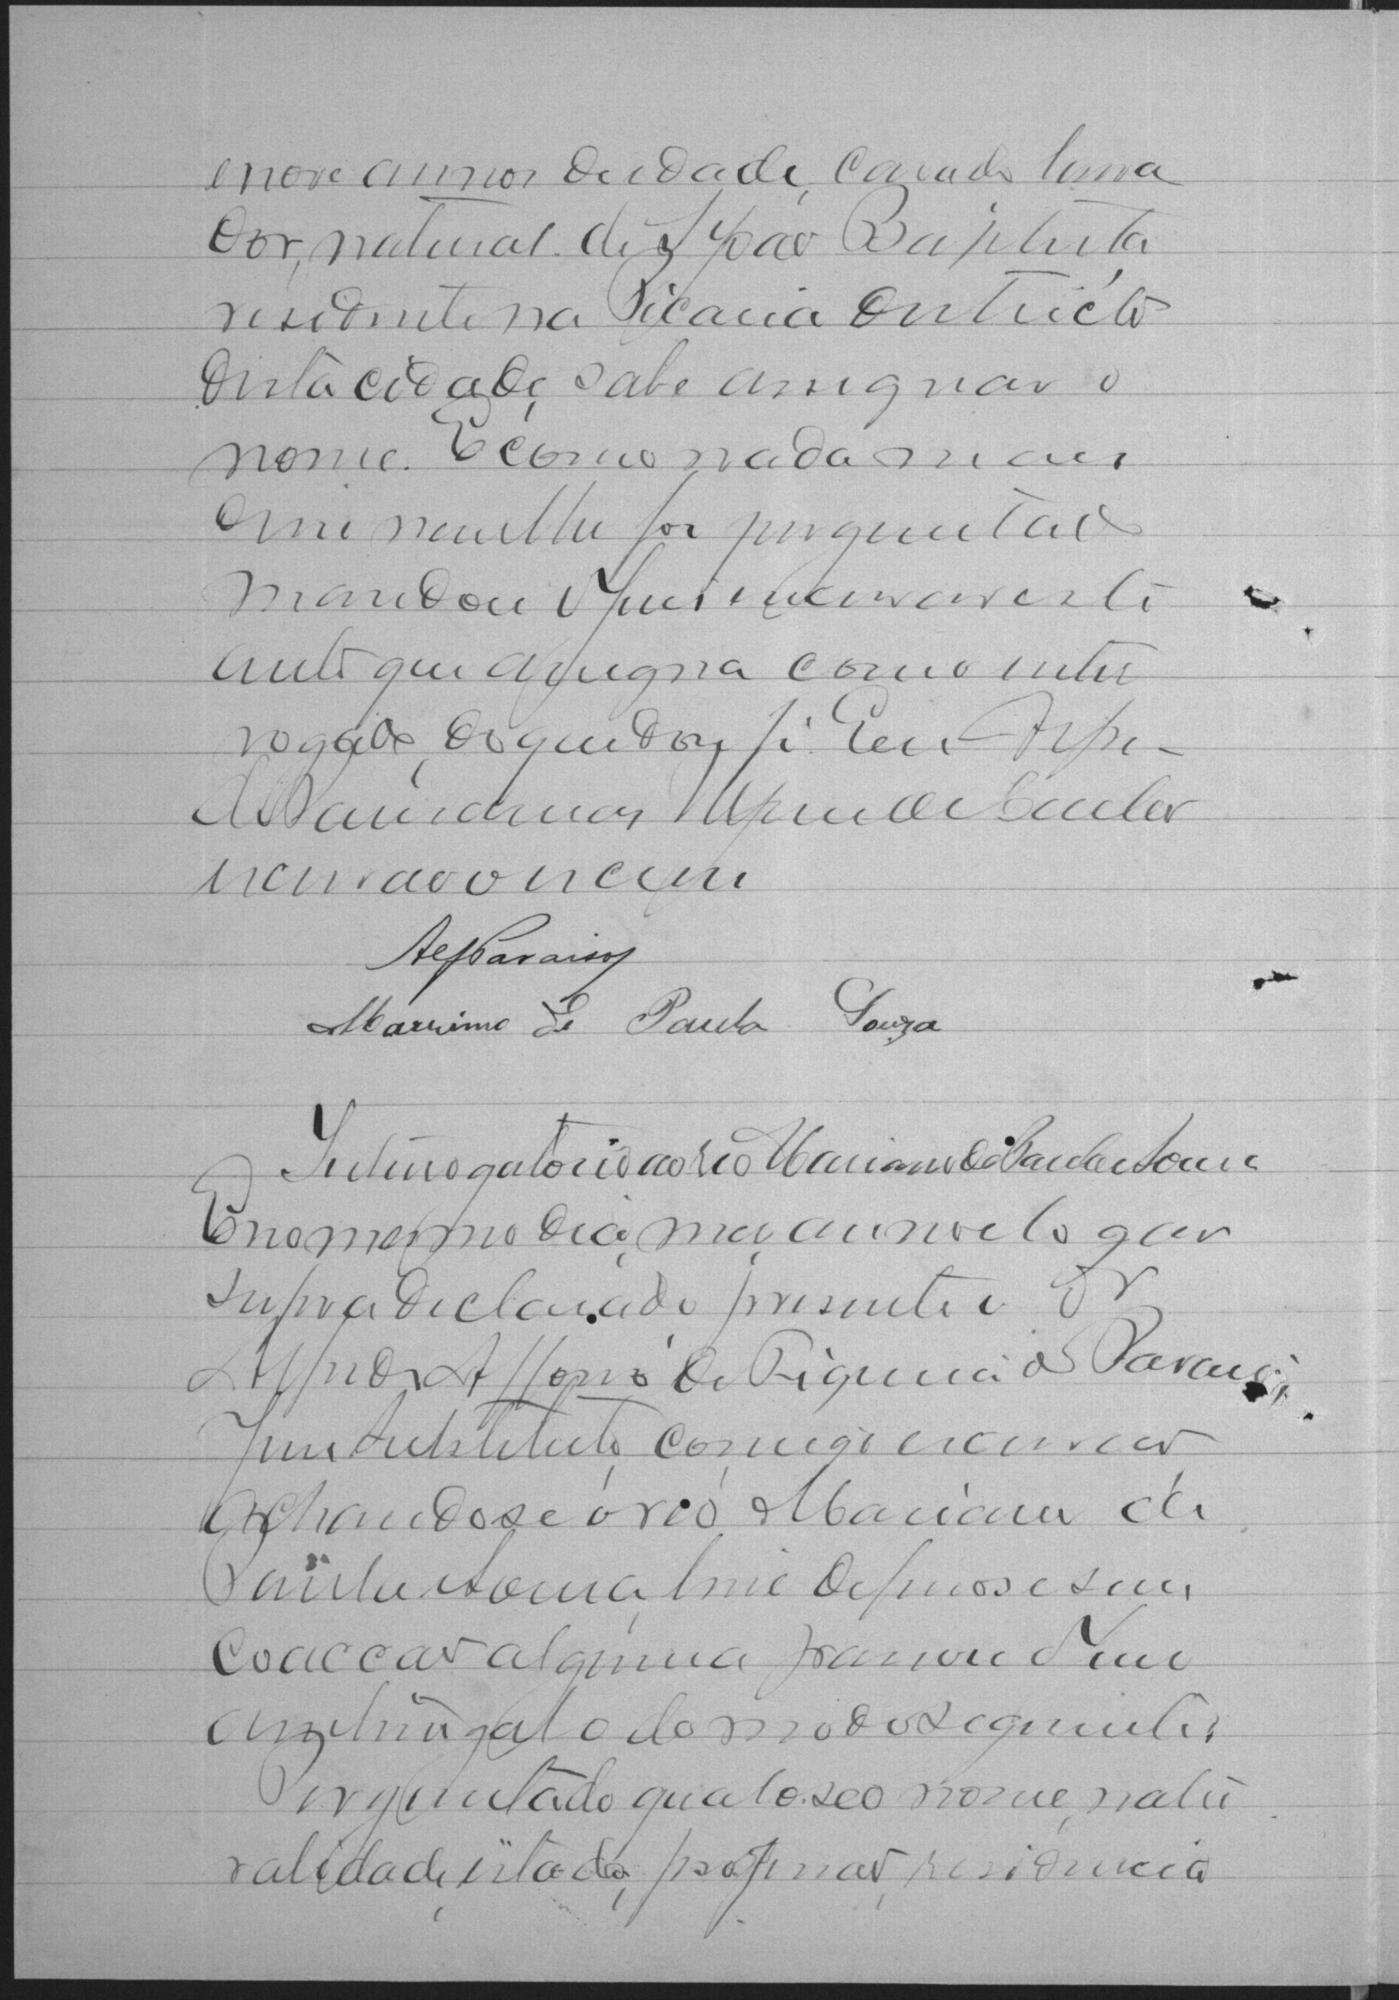 e nove annos de idade, casado lavra
dor, natural de S João Baptista
residente na Picaria districto
desta cidade, sabe assignar o
nome. E como nada mais
disse nem lhe foi perguntado
mandou o Juiz lavrar este
auto que assigna com o inter
rogado, do que dou fé. Eu
escrivão o escrevi
AefParaiso
Maximo de Paula Souza
Interrogatorio ao reo Mariano de Paula Souza
E no mesmo dia, mez, anno e logar
supra declarado presente o Dr
Alfredo Affonso de Siqueira Paraiso,
Juiz Substituto, comigo escrivão
achando-se o reo Mariano de
Paula Souza, livre de ferros e sem
coacção alguma passou o Juiz
a interrogal o do modo seguinte:
Perguntado qual o seo nome, natu
ralidade, estado, profissão, residencia